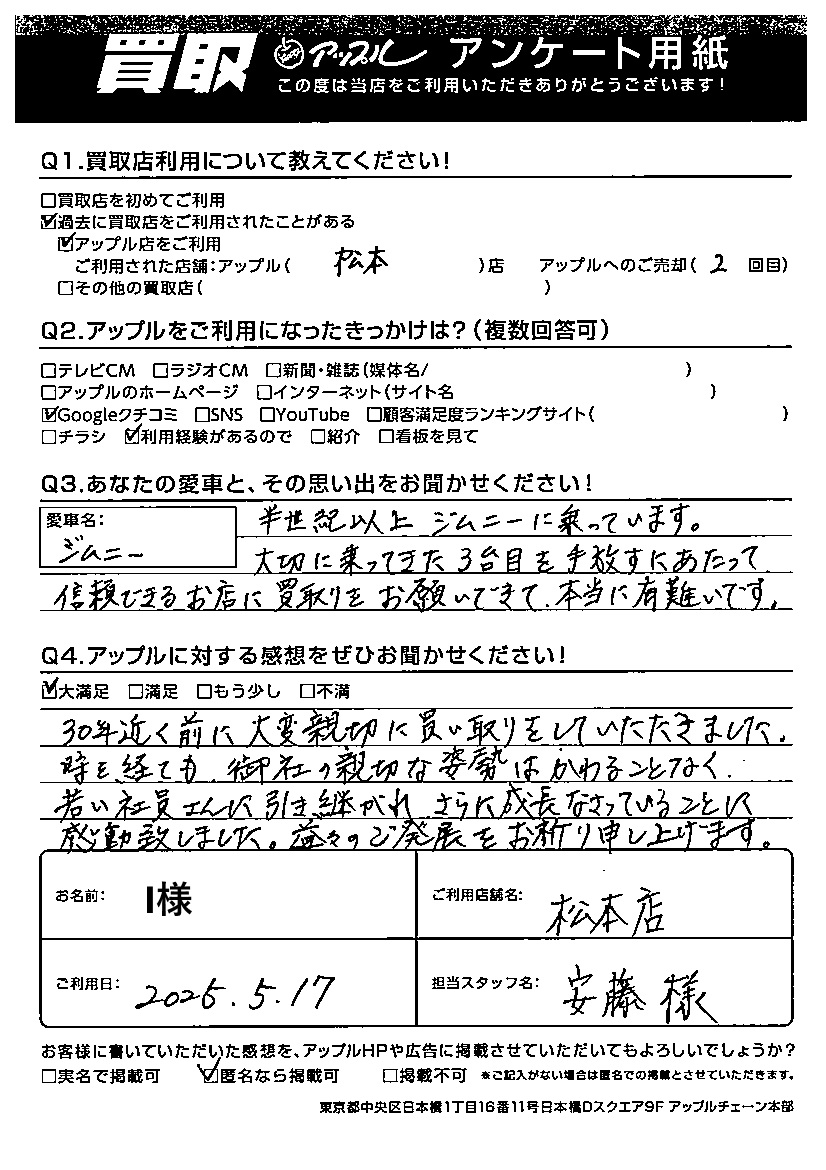 買取 アップル アンケート用紙
この度は当店をご利用いただきありがとうございます!
Q1.買取店利用について教えてください!
□買取店を初めてご利用
☑過去に買取店をご利用されたことがある
☑アップル店をご利用
ご利用された店舗:アップル( 松本 )店 アップルへのご売却( 2 回目)
□その他の買取店( )
Q2.アップルをご利用になったきっかけは?(複数回答可)
□テレビCM □ラジオCM □新聞・雑誌(媒体名/ )
□アップルのホームページ □インターネット(サイト名 )
☑Googleクチコミ □SNS □YouTube □顧客満足度ランキングサイト( )
□チラシ ☑利用経験があるので □紹介 □看板を見て
Q3.あなたの愛車と、その思い出をお聞かせください!
愛車名:
ジムニー
半世紀以上 ジムニーに乗っています。
大切に乗ってきた3台目を手放すにあたって
信頼できるお店に買取りをお願いできて、本当に有難いです。
Q4.アップルに対する感想をぜひお聞かせください!
☑大満足 □満足 □もう少し □不満
30年近く前に大変親切に買い取りをしていただきました。
時を経ても、御社の親切な姿勢はかわることなく、
若い社員さんに引き継がれ さらに成長なさっていることに
感動致しました。益々のご発展をお祈り申し上げます。
お名前: I様 ご利用店舗名: 松本店
ご利用日: 2025.5.17 担当スタッフ名: 安藤様
お客様に書いていただいた感想を、アップルHPや広告に掲載させていただいてもよろしいでしょうか?
□実名で掲載可 ☑匿名なら掲載可 □掲載不可 ※ご記入がない場合は匿名での掲載とさせていただきます。
東京都中央区日本橋1丁目16番11号日本橋Dスクエア9F アップルチェーン本部